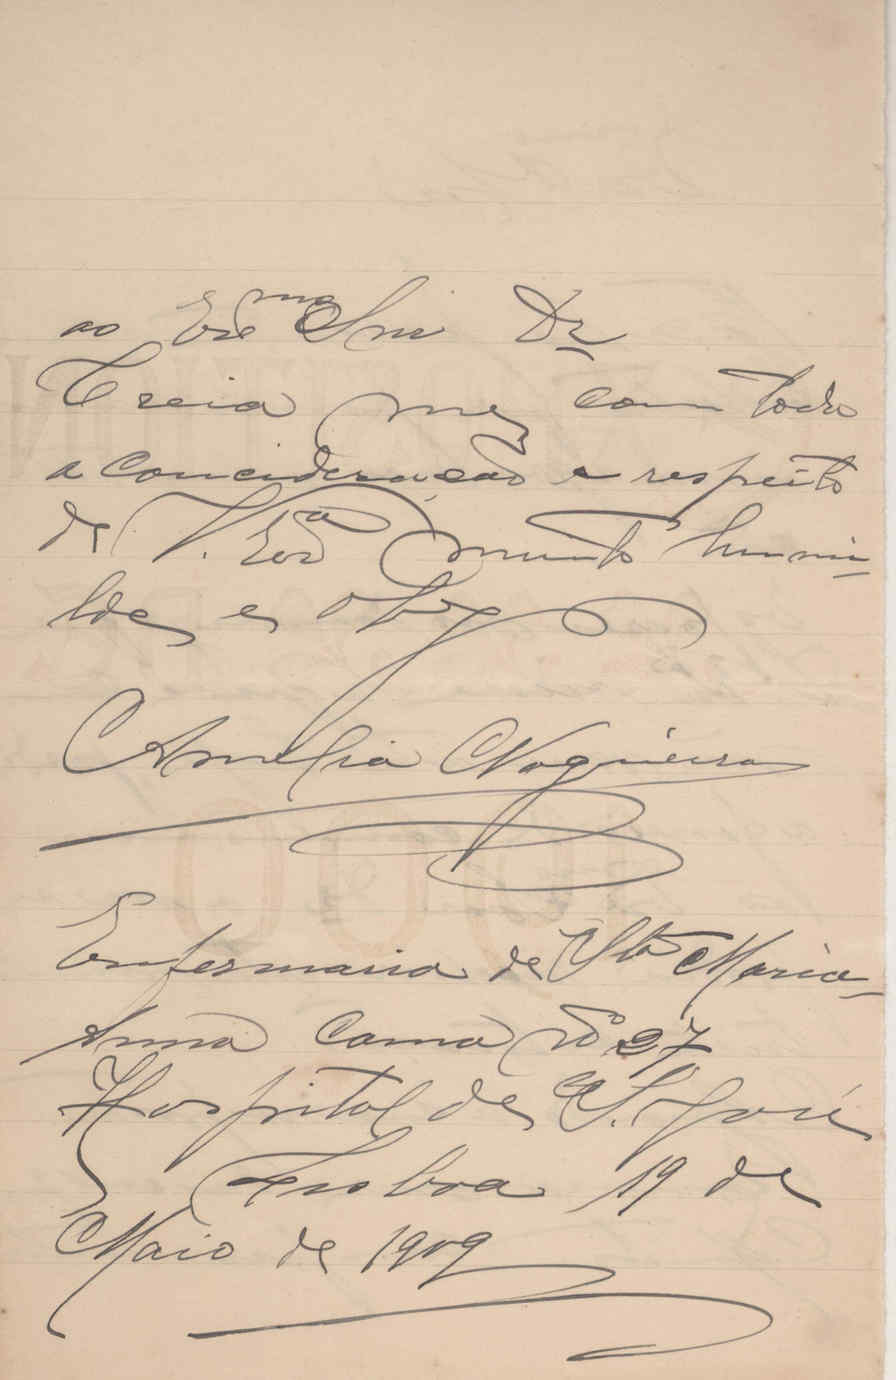 ao Exmo Snr Dr
Creia me com todo
a concideracão e respeito
de V. Exa muinto humi-
lde e obg
Amelia Nogueira
Enfermaria de Sta Maria-
Anna Cama No 27
Hospital de S. José
Lisboa 19 de
Maio de 1909